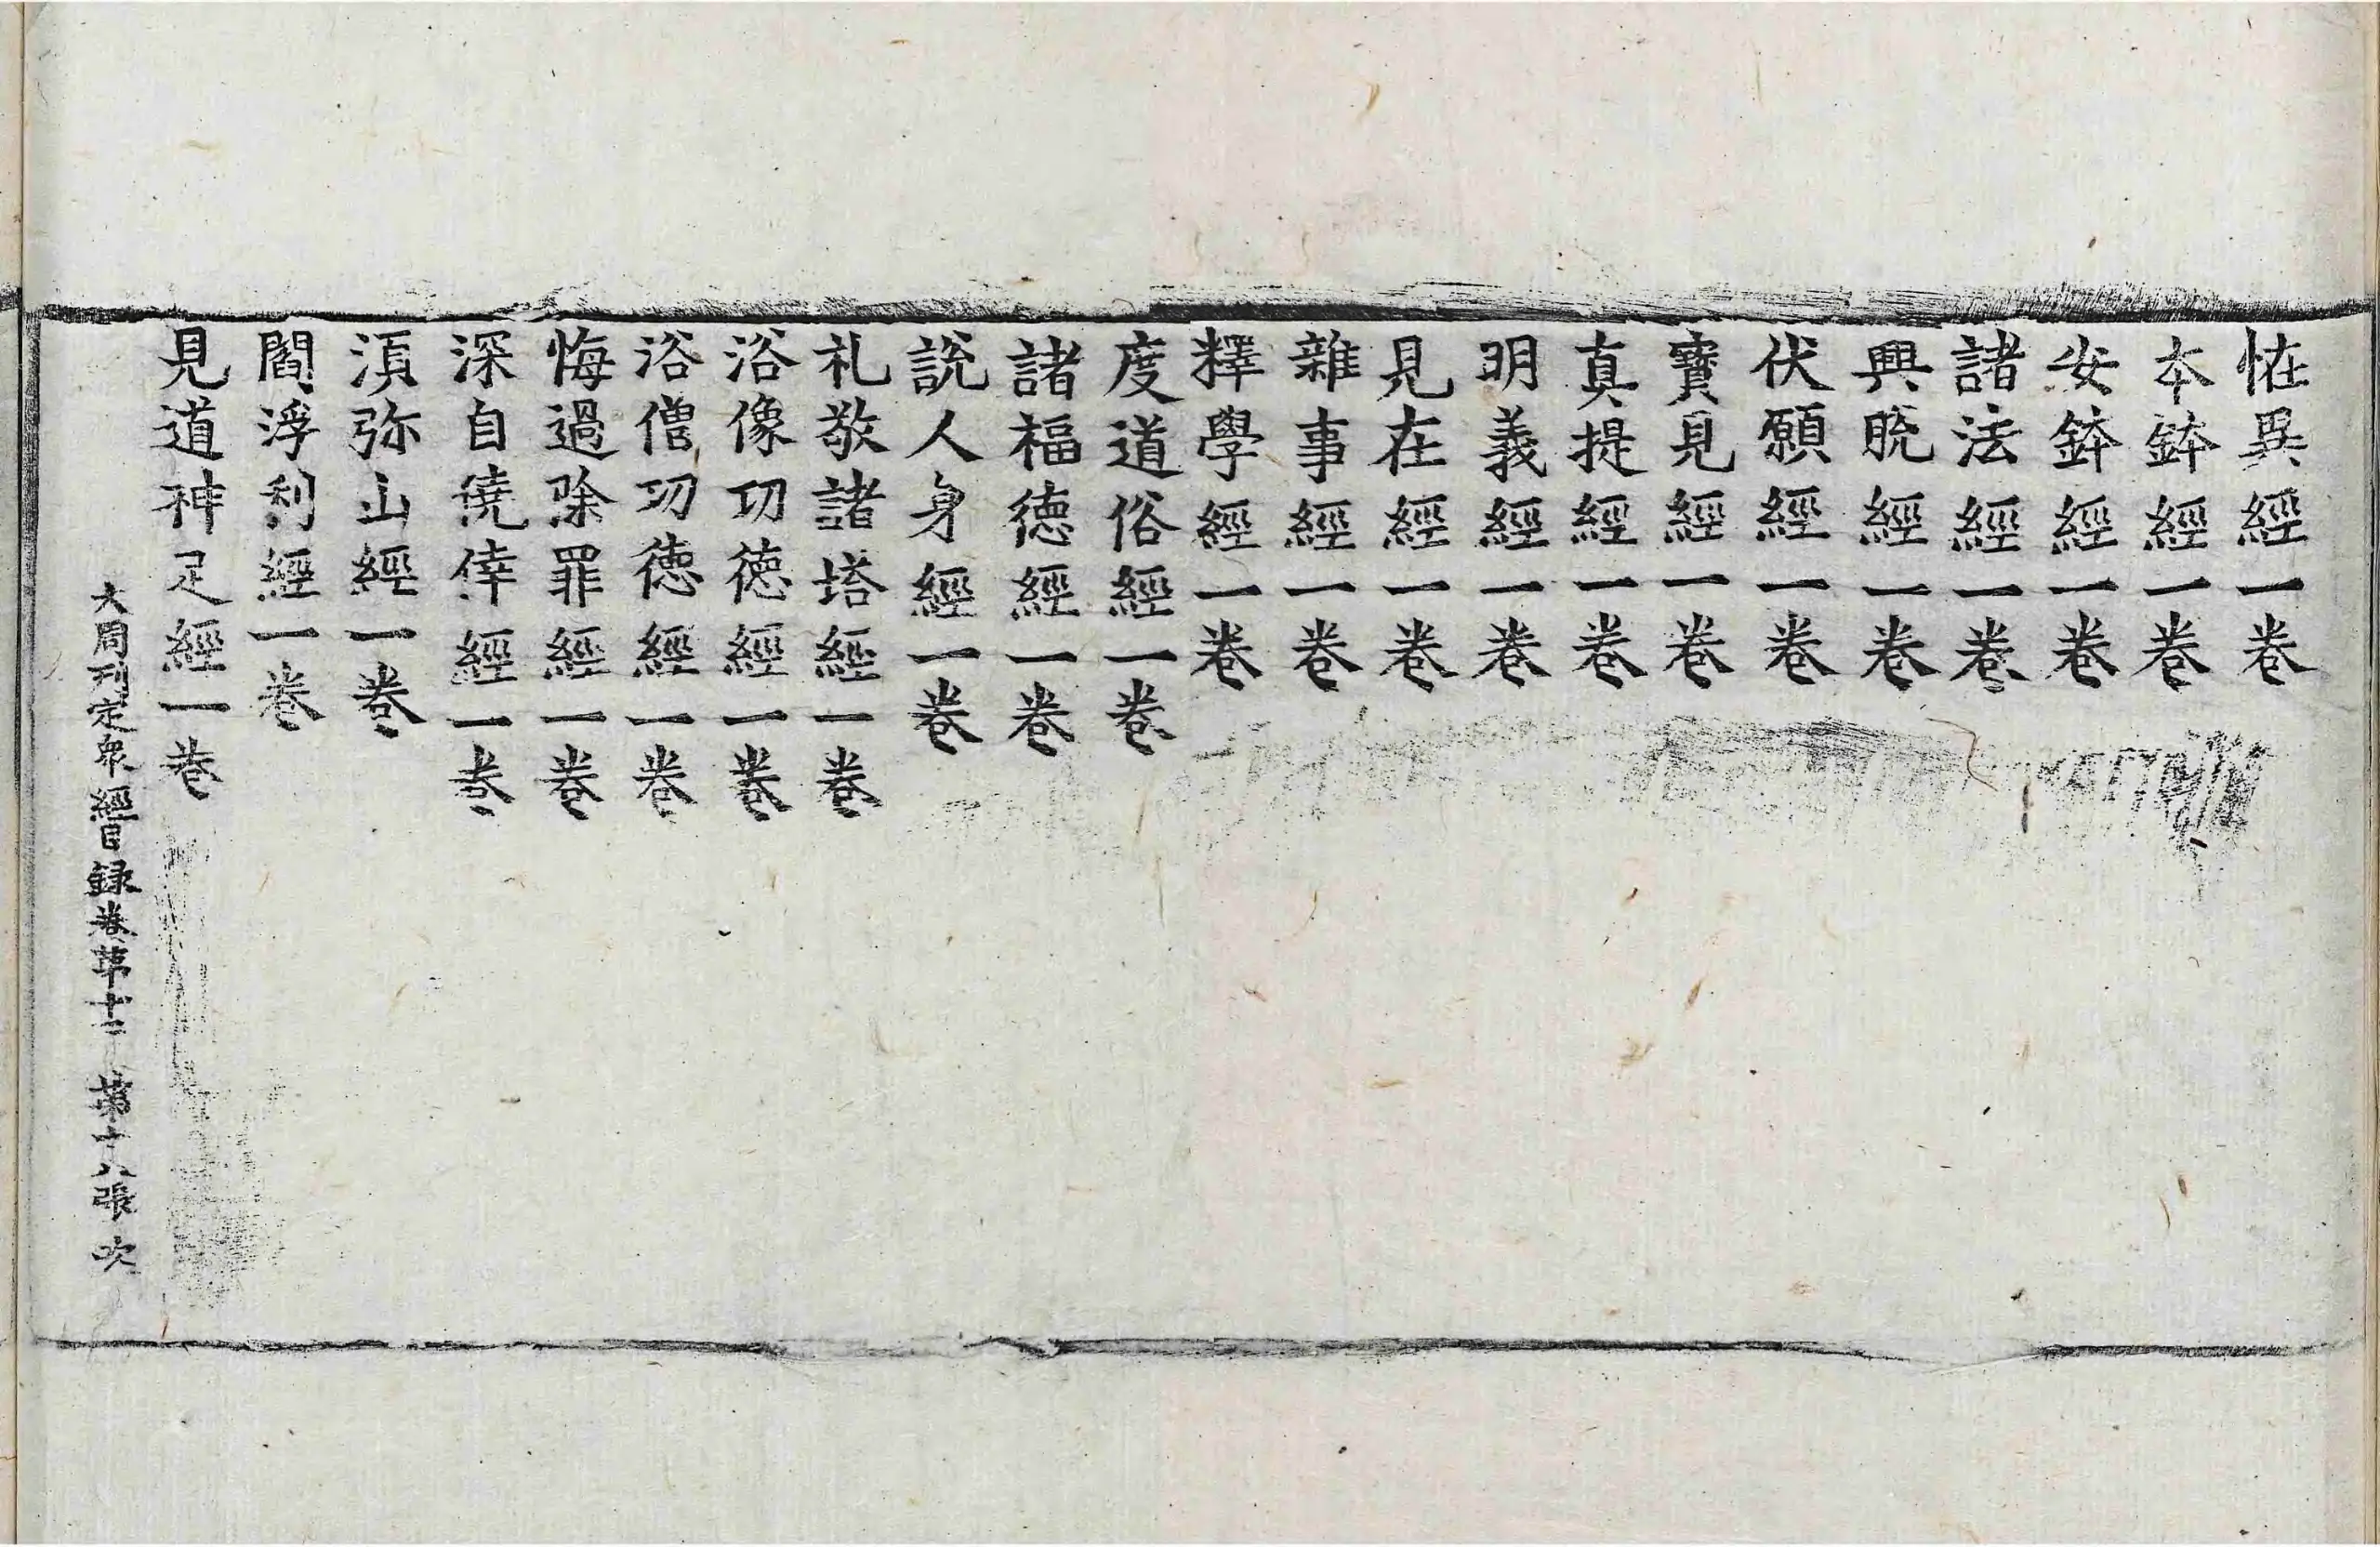 恠異經一卷
本鉢經一卷
安鉢經一卷
諸法經一卷
興脫經一卷
伏願經一卷
寶見經一卷
真提經一卷
明義經一卷
見在經一卷
雜事經一卷
釋學經一卷
度道俗經一卷
諸福德經一卷
說人身經一卷
礼敬諸塔經一卷
浴像功德經一卷
浴僧功德經一卷
悔過除罪經一卷
深自僥倖經一卷
湏弥山經一卷
閻浮利經一卷
見道神足經一卷
大周刊定衆經目録卷第十二 第十八張 吹